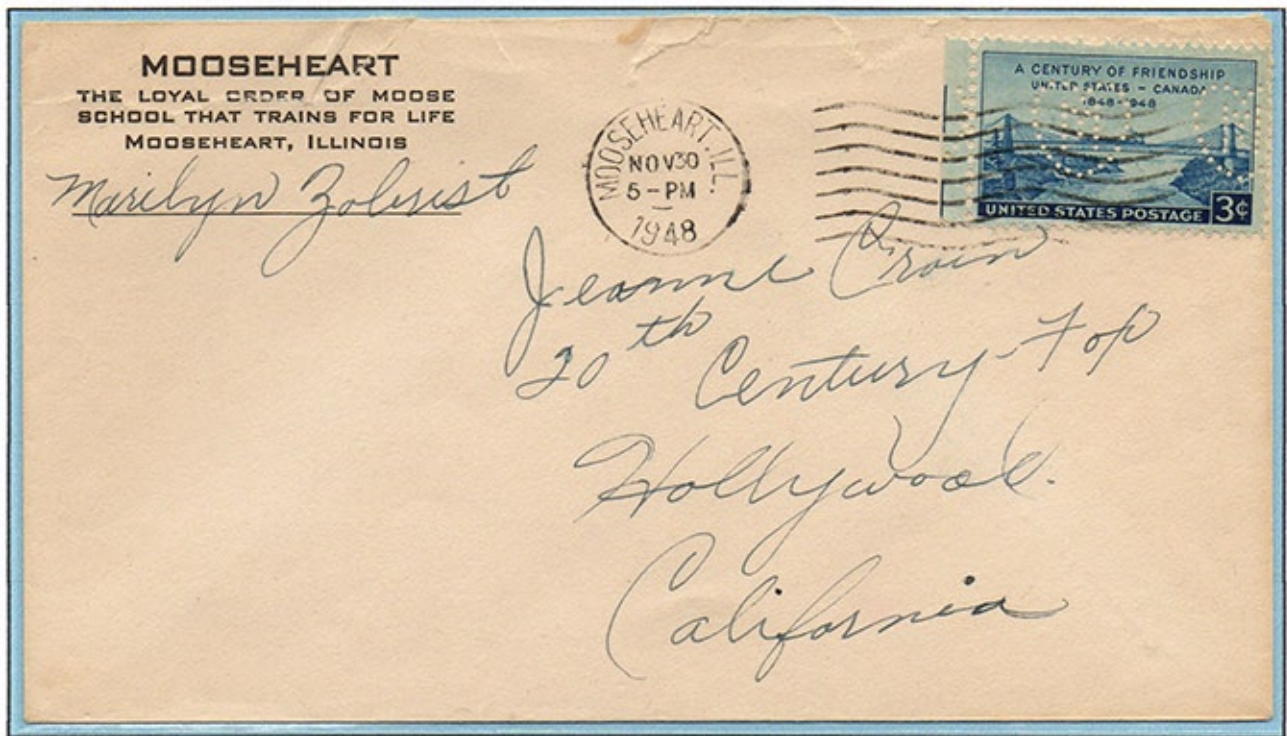 MOOSEHEART
THE LOYAL ORDER OF MOOSE
SCHOOL THAT TRAINS FOR LIFE
MOOSEHEART, ILLINOIS
Marilyn Zobrist
MOOSEHEART. ILL.
NOV 30
5-PM
1948
A CENTURY OF FRIENDSHIP
UNITED STATES - CANADA
1848-1948
UNITED STATES POSTAGE 3¢
Jeanne Crain
20th Century-Fox
Hollywood.
California